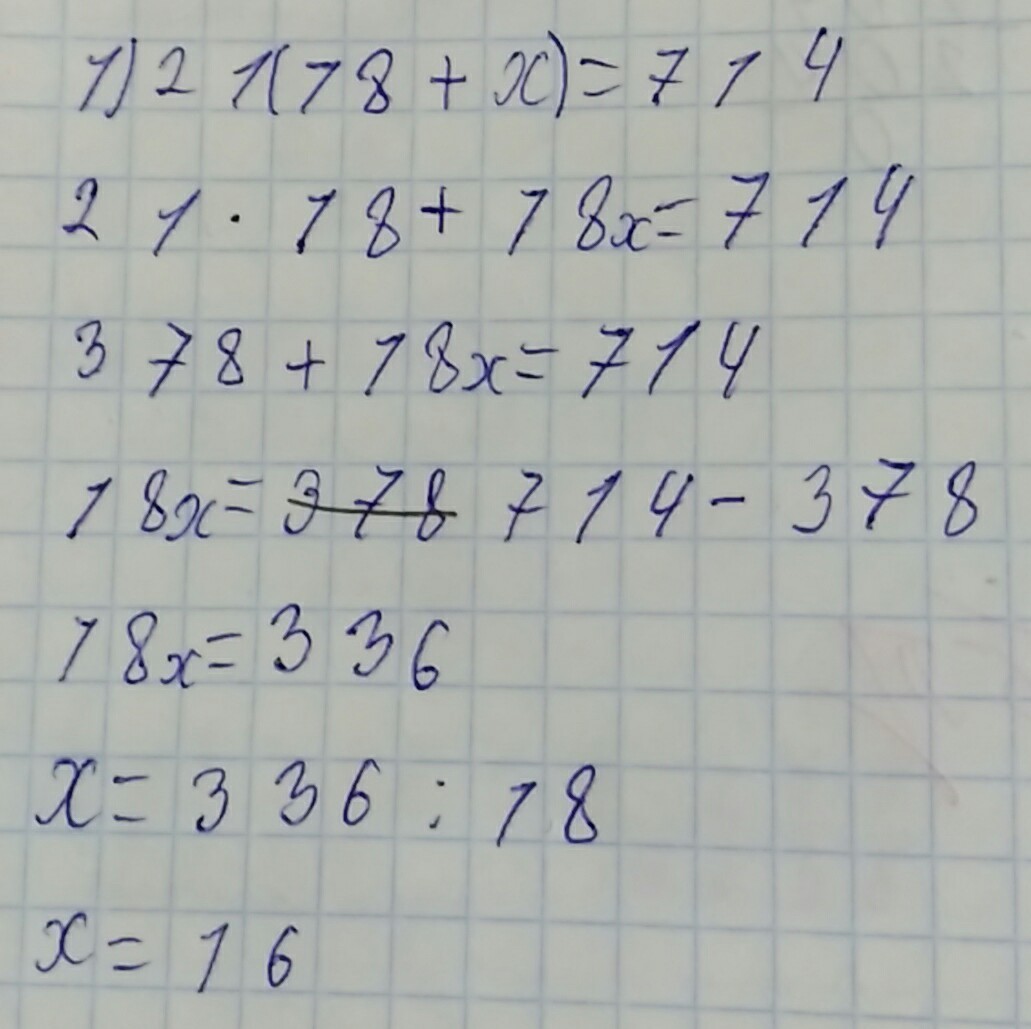 1) 21(18 + x) = 714
21 · 18 + 18x = 714
378 + 18x = 714
18x = 378 714 - 378
18x = 336
x = 336 : 18
x = 16